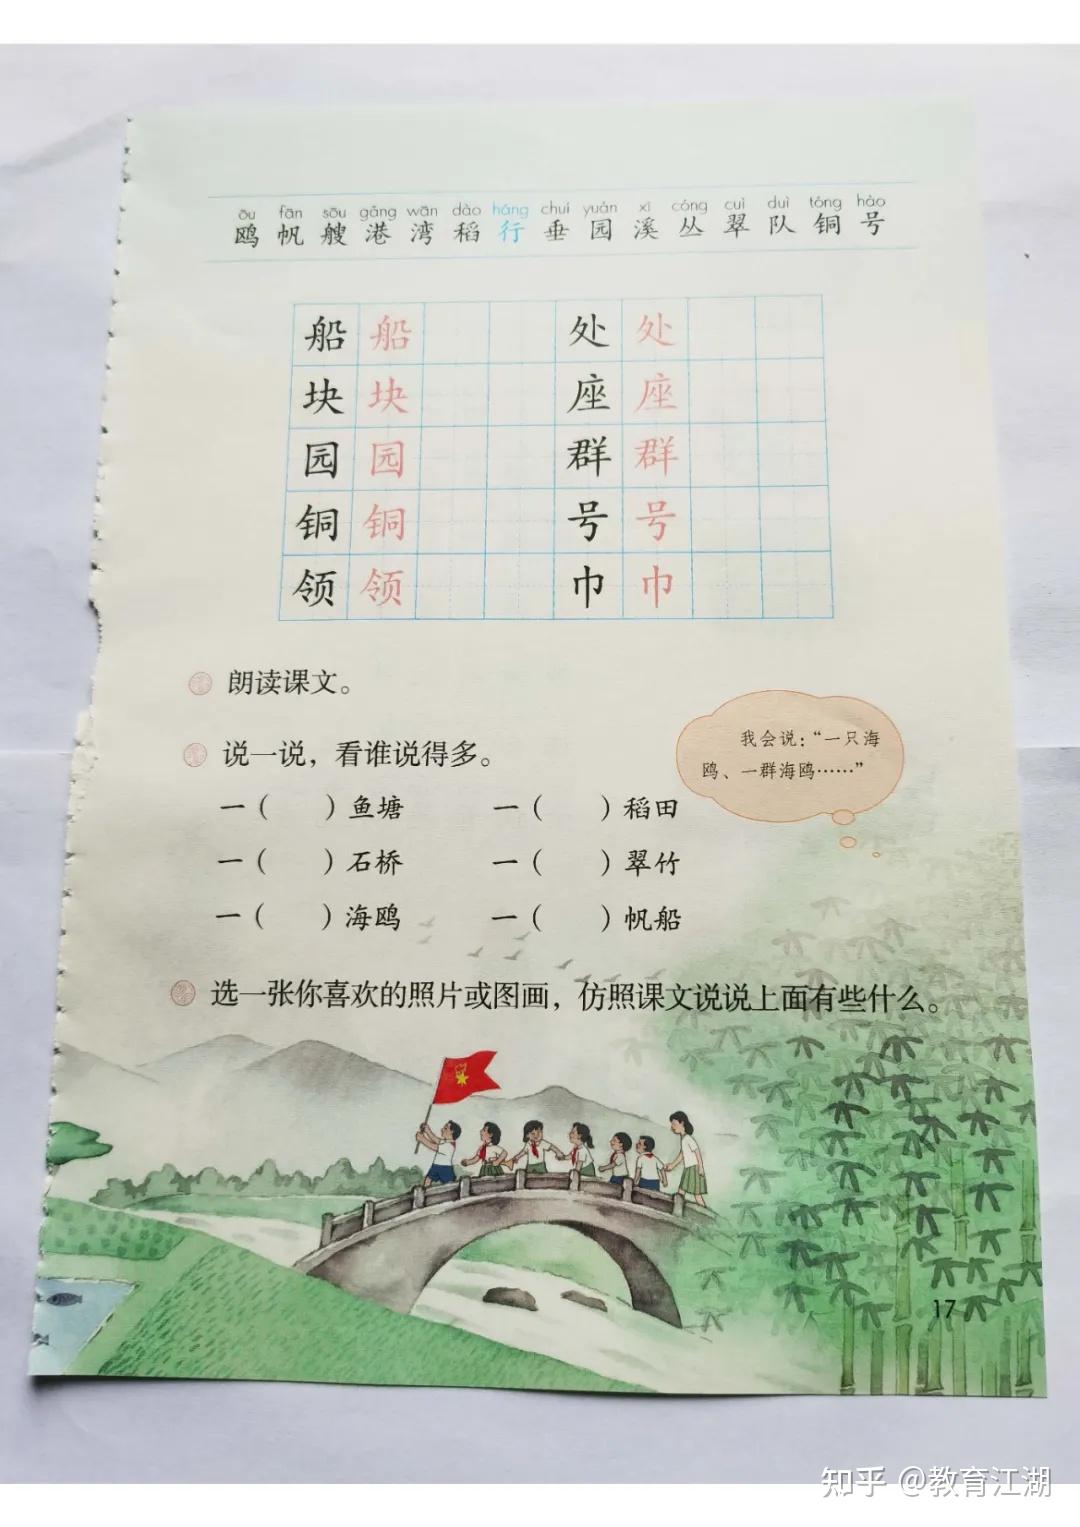 ōu fān sōu gǎng wān dào háng chuí yuán xī cóng cuì duì tóng hào
鸥 帆 艘 港 湾 稻 行 垂 园 溪 丛 翠 队 铜 号
船 船 处 处
块 块 座 座
园 园 群 群
铜 铜 号 号
领 领 巾 巾
朗读课文。
说一说，看谁说得多。
我会说：“一只海
鸥、一群海鸥……”
一（ ）鱼塘 一（ ）稻田
一（ ）石桥 一（ ）翠竹
一（ ）海鸥 一（ ）帆船
选一张你喜欢的照片或图画，仿照课文说说上面有些什么。
17
知乎 @教育江湖